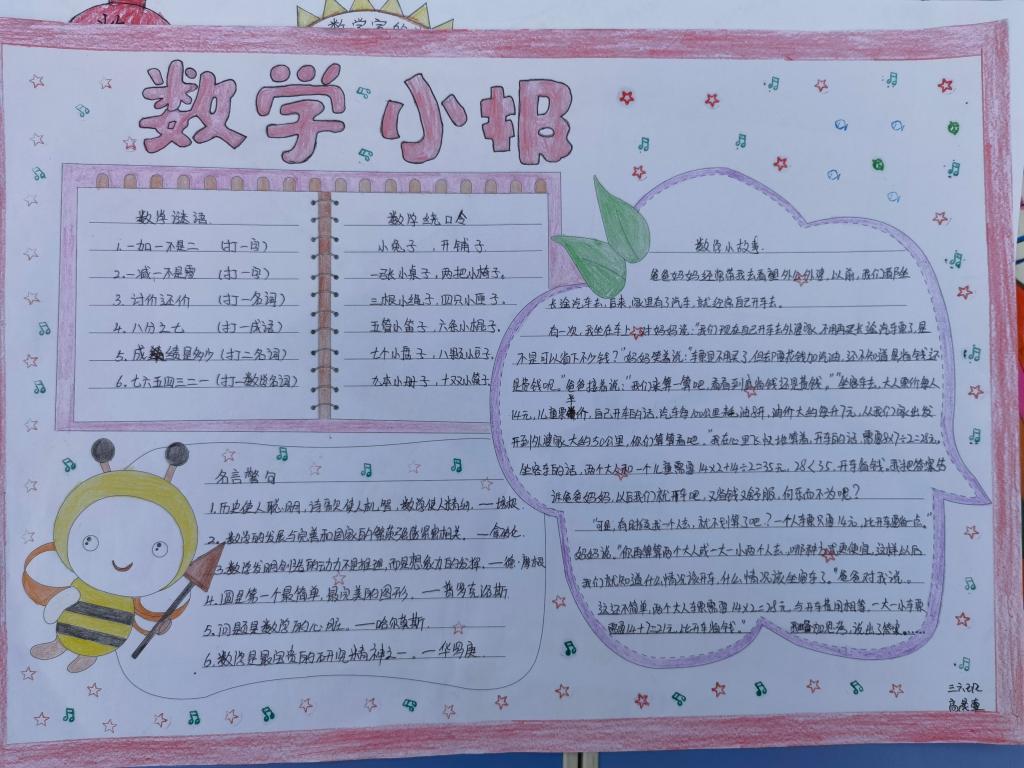 数学家的
数学小报
数学谜语
1.一加一不是二 (打一字)
2.一减一不是零 (打一字)
3.讨价还价 (打一名词)
4.八分之七 (打一成语)
5.成绩是多少(打二名词)
6.七六五四三二一(打一数学名词)
数学绕口令
小兔子,开铺子
一张小桌子,两把小椅子。
三根小绳子,四只小匣子。
五管小笛子,六条小棍子。
七个小盘子,八颗小豆子,
九本小册子,十双小筷子
名言警句
1.历史使人聪明,诗歌使人机智,数学使人精细。—培根
2.数学的发展与完美和国家的繁荣强盛紧密相关。
3.数学发明创造的动力不是推理,而是想象力的发挥。—德·摩根
4.圆是第一个最简单,最完美的图形。—普罗克洛斯
5.问题是数学的心脏。—哈尔莫斯
6.数学是最宝贵的研究精神之一。—华罗庚
数学小故事
爸爸妈妈经常带我去看望外公外婆,以前,我们都坐
长途汽车去,后来,家里有了汽车,就经常自己开车去。
有一次,我坐在车上,对妈妈说:"我们现在自己开车去外婆家,不用再买长途汽车票了,是
不是可以省下不少钱?"妈妈笑着说:"车票是不用买了,但车要花钱加汽油,还不知道是省钱还
是费钱呢。"爸爸接着说:"我们来算一算吧,看看到底省钱还是费钱。""坐客车去,大人票价每人
14元,儿童票半价,自己开车的话,汽车每100公里耗油8升,油价大约每升7元,从我们家出发
开到外婆家大约50公里,你们算算看吧。"我在心里飞快地算着,开车的话,需要8×7÷2=28元。
坐客车的话,两个大人和一个儿童需要14×2+14÷2=35元,28<35,开车省钱。我把答案告
诉爸爸妈妈,以后我们就开车吧,又省钱又舒服,何乐而不为呢?
"可是,有时候我一个人去,就不划算了吧?一个人车票只要14元,比开车要省一点。"
妈妈说:"你再算算两个大人或一大一小两个人去,哪种方式更便宜,这样以后
我们就知道什么情况该开车,什么情况该坐客车了。"爸爸对我说。
这还不简单,两个大人车票需要14×2=28元,与开车费用相等,一大一小车票
需要14+7=21元,比开车省钱。"我略加思考,说出了答案……
三六班
高